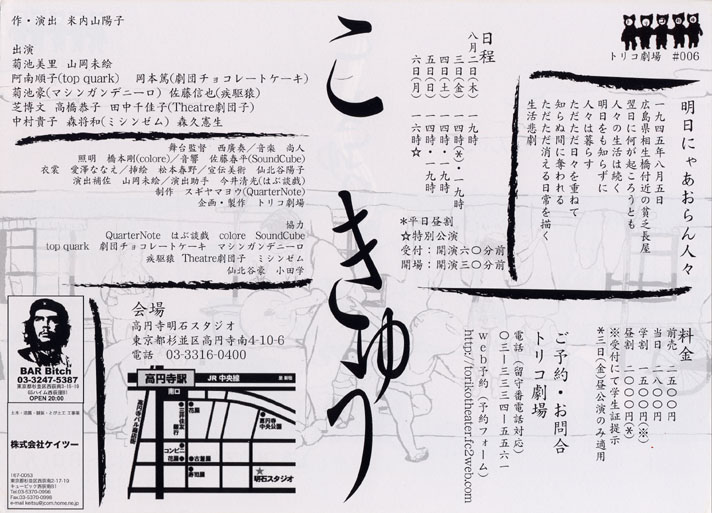 トリコ劇場 #006
明日にゃあおらん人々
一九四五年八月五日
広島県相生橋付近の貧乏長屋
翌日に何が起ころうとも
人々の生活は続く
明日をも知らずに
人々は暮らす
ただただ日々を重ねて
知らぬ間に奪われる
ただただ消える日常を描く
生活悲劇
日程
八月二日(木) 一九時
三日(金) 一四時(*)・一九時
四日(土) 一四時・一九時
五日(日) 一四時・一九時
六日(月) 一六時☆
*平日昼割
☆特別公演
受付:開演六〇分前
開場:開演三〇分前
こきゅう
作・演出 米内山陽子
出演
菊池美里 山岡未絵
阿南順子(top quark) 岡本篤(劇団チョコレートケーキ)
菊池豪(マシンガンデニーロ) 佐藤信也(疾駆猿)
芝博文 高橋恭子 田中千佳子(Theatre劇団子)
中村貴子 森将和(ミシンゼム) 森久憲生
舞台監督 西廣奏/音楽 尚人
照明 橋本剛(colore)/音響 佐藤春平(SoundCube)
衣裳 愛澤ななえ/挿絵 松本春野/宣伝美術 仙北谷陽子
演出補佐 山岡未絵/演出助手 今井清光(はぶ談戯)
制作 スギヤマヨウ(QuarterNote)
企画・製作 トリコ劇場
協力
QuarterNote はぶ談戯 colore SoundCube
top quark 劇団チョコレートケーキ マシンガンデニーロ
疾駆猿 Theatre劇団子 ミシンゼム
仙北谷豪 小田学
料金
前売 二五〇〇円
当日 二八〇〇円
学割 一五〇〇円(※)
昼割 二〇〇〇円(*)
※受付にて学生証提示
*三日(金)昼公演のみ適用
ご予約・お問合
トリコ劇場
電話(留守番電話対応)
〇三-三三三四-五五六一
web予約(予約フォーム)
http://torikotheater.fc2web.com
会場
高円寺明石スタジオ
東京都杉並区高円寺南4-10-6
電話 03-3316-0400
高円寺駅 JR 中央線
南口
高円寺パル商店街
三井住友銀行
花屋
高円寺中央公園
コンビニ
花屋
古着屋
寿司屋
明石スタジオ
BAR Bitch
03-3247-5387
OPEN 20:00
株式会社ケイツー
167-0053
東京都杉並区西荻南2-17-19
キュービック西荻南B1
Tel.03-5370-0996
Fax.03-5370-0998
e-mail keitsu@jcom.home.ne.jp